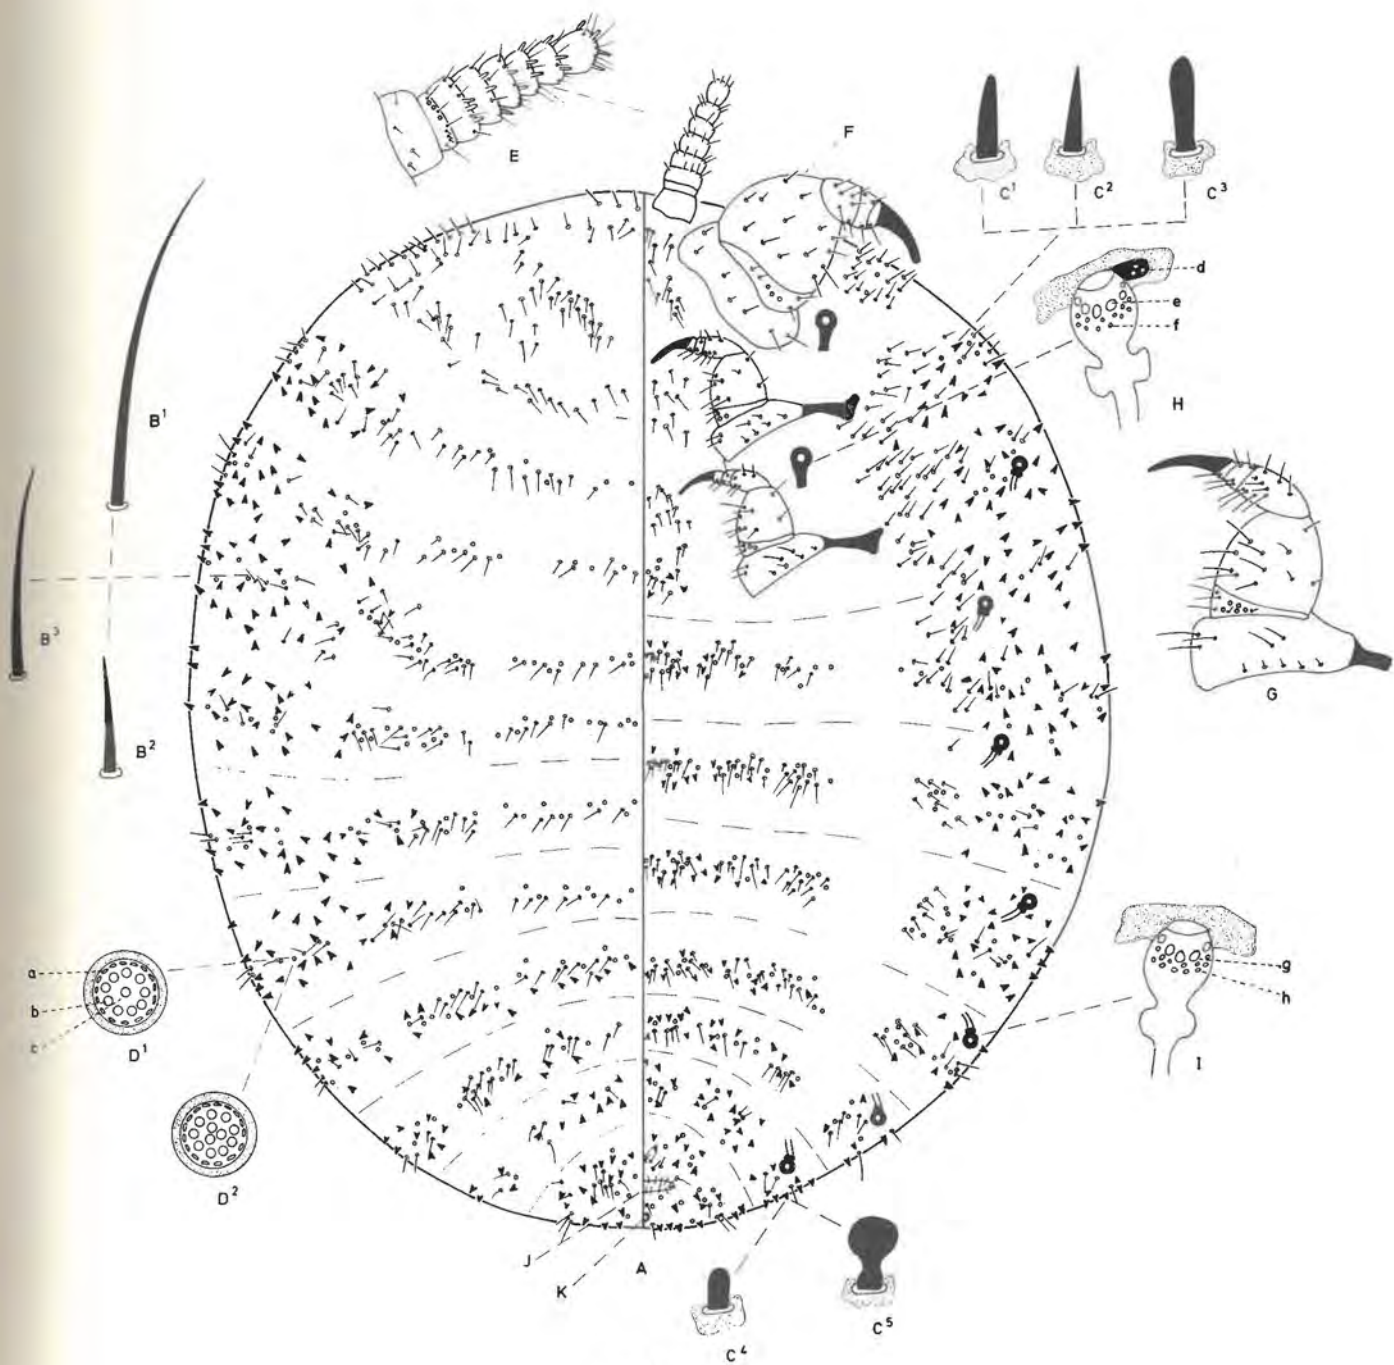 E
F
C¹ C² C³
d
e
f
H
B¹
G
B³
B²
a
b
c
D¹
g
h
I
D²
J
K
A
C⁴
C⁵